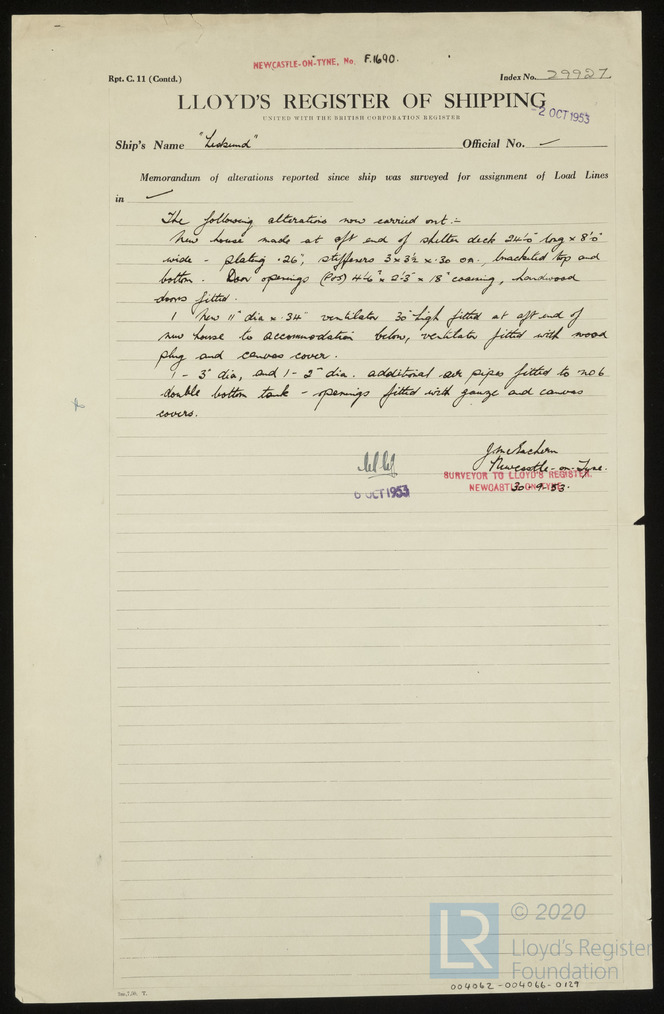 NEWCASTLE-ON-TYNE, No. F.1690.
Rpt. C. 11 (Contd.)
Index No. 29927
LLOYD'S REGISTER OF SHIPPING
UNITED WITH THE BRITISH CORPORATION REGISTER
-2 OCT 1953
Ship's Name "Leksund" Official No. —
Memorandum of alterations reported since ship was surveyed for assignment of Load Lines
in
The following alterations now carried out:-
New house made at aft end of shelter deck 24'0" long x 8'0"
wide - plating .26", stiffeners 3 x 3½ x .30 OA. bracketed top and
bottom. Door openings (P&S) 4'6" x 2'3" x 18" coaming, hardwood
doors fitted.
1 New 11" dia x .34" ventilator 30" high fitted at aft end of
new house to accommodation below, ventilator fitted with wood
plug and canvas cover.
1 - 3" dia, and 1 - 2" dia. additional air pipes fitted to no 6
double bottom tank - openings fitted with gauze and canvas
covers.
J. McEachern
Newcastle-on-Tyne.
SURVEYOR TO LLOYD'S REGISTER.
NEWCASTLE-ON-TYNE.
30-9-53.
6 OCT 1953
LR
© 2020
Lloyd's Register
Foundation
004062-004066-0129